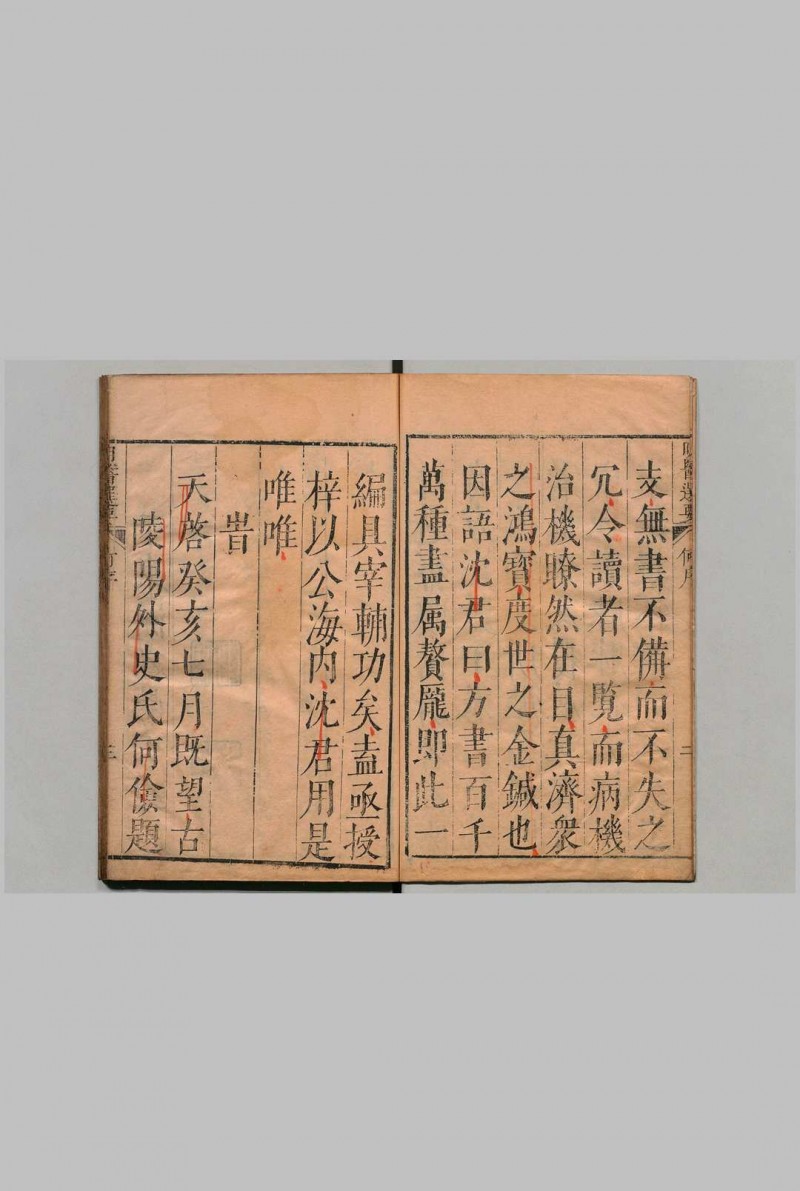 支無書不備而不失之
冗令讀者一覧而病機
治機瞭然在目真濟衆
之鴻寶度世之金鍼也
因語沈君曰方書百千
萬種盡属贅龐即此一
編具宰輔功矣盍亟授
梓以公海内沈君用是
唯唯
旹
天啓癸亥七月既望古
陵陽外史氏何偹題